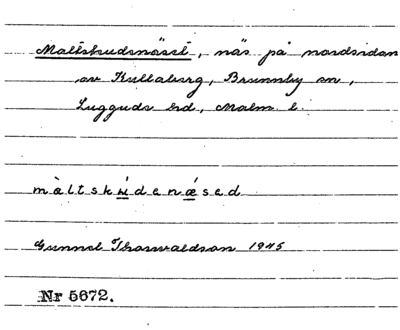 Maltskudsnäset, näs på nordsidan
av Kullaberg, Brunnby sn,
Lugguds hd, Malm. l.
màltskúdenǽsed
Gunnel Thorwaldson 1945
Nr 5672.